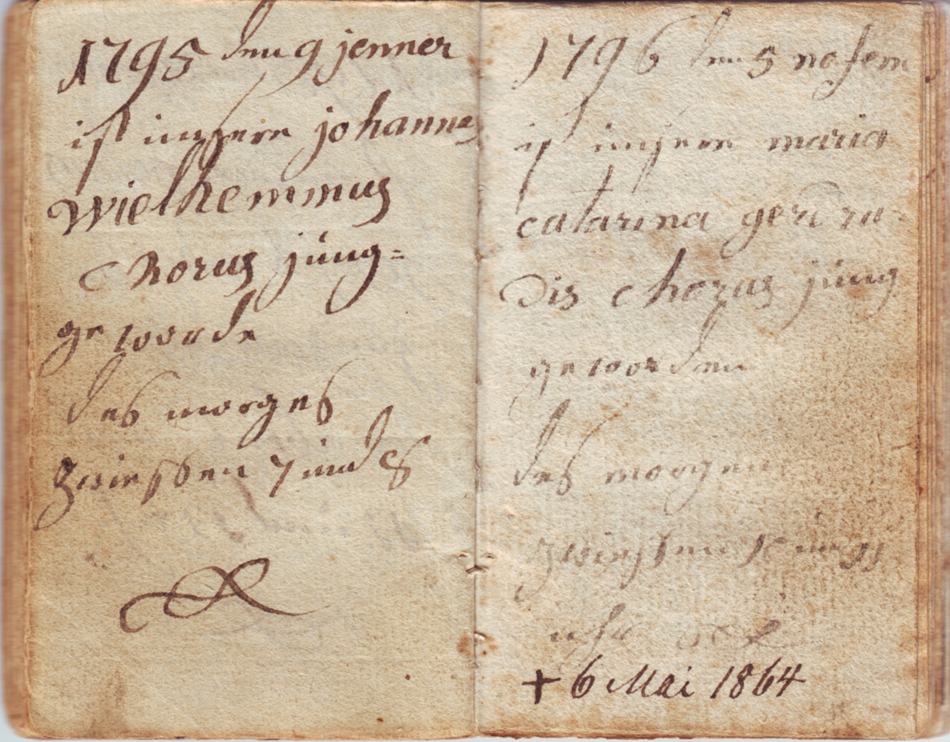 1795 den 9 jenner
ist unsere johanne
Wielhemmus
Chorus jüng=
ge worde
des morges
zwiessen 7 und 8
1796 den 5 nofem
ist unsere maria
catarina gerdru=
dis chorus jüng
geworden
des morgen
zwiessen
uhr
† 6 Mai 1864